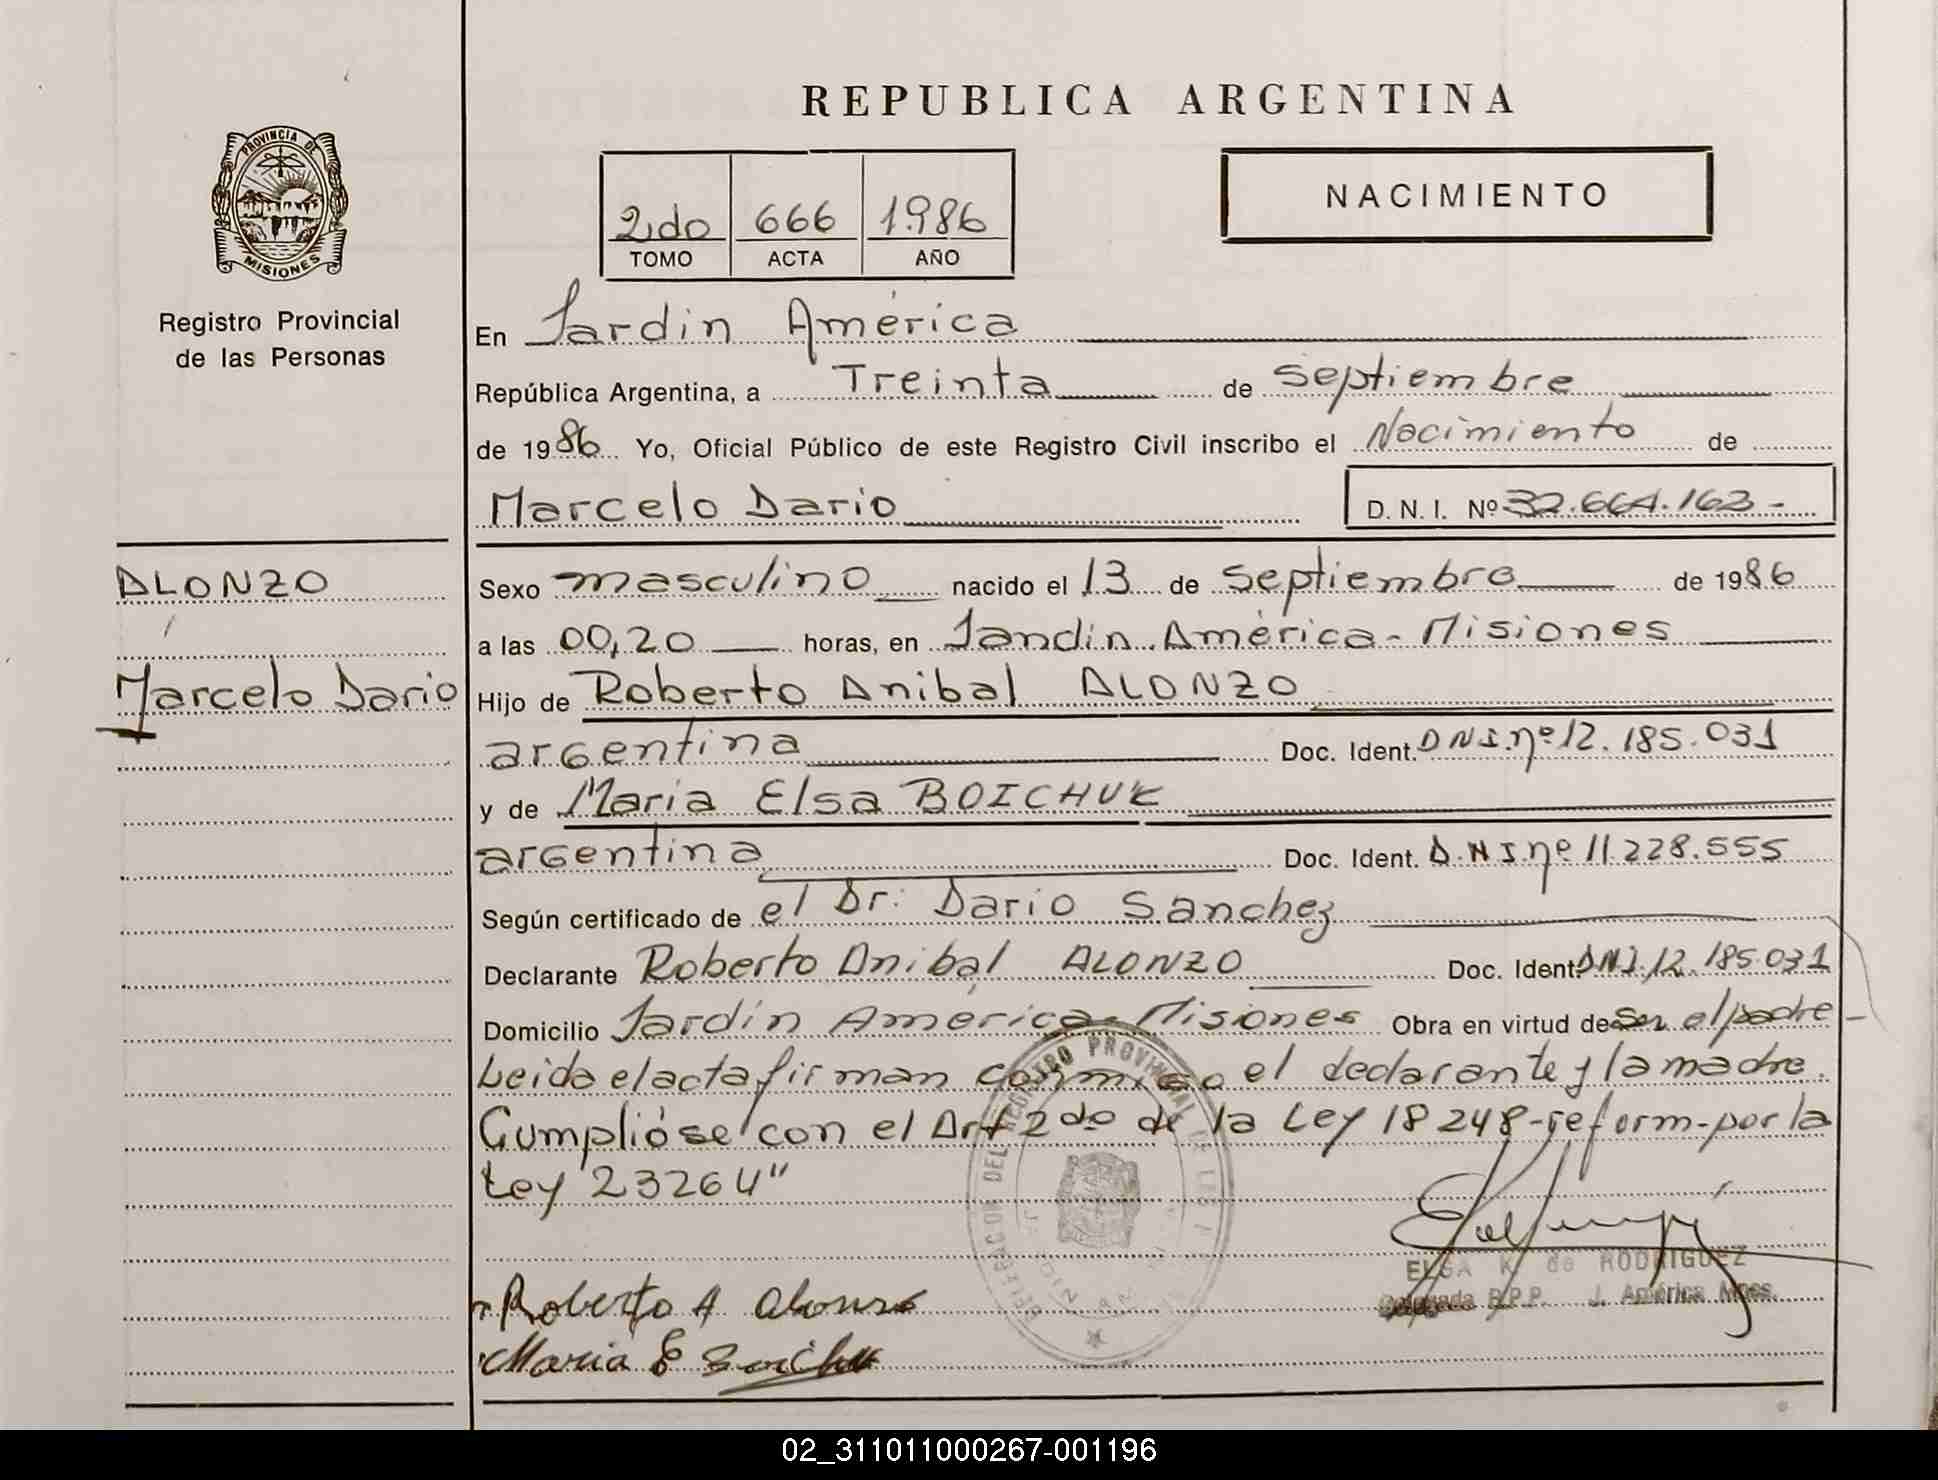 REPUBLICA ARGENTINA
PROVINCIA DE
MISIONES
Registro Provincial
de las Personas
2do 666 1986
TOMO ACTA AÑO
NACIMIENTO
En Jardin América
República Argentina, a Treinta de septiembre
de 1986 Yo, Oficial Público de este Registro Civil inscribo el Nacimiento de
Marcelo Dario D. N. I. Nº 32.664.163-
ALONZO
Marcelo Dario
Sexo masculino nacido el 13 de septiembre de 1986
a las 00,20 horas, en Jardin América - Misiones
Hijo de Roberto Anibal ALONZO
argentina Doc. Ident. DNI.nº12.185.031
y de Maria Elsa BOICHUK
argentina Doc. Ident. D.N.I.nº 11.228.555
Según certificado de el Dr: Dario Sanchez
Declarante Roberto Anibal ALONZO Doc. Ident. DNI.12.185.031
Domicilio Jardín América - Misiones Obra en virtud de ser el padre -
Leida el acta firman conmigo el declarante y la madre.
Cumplióse con el Art 2do de la Ley 18248-reform-por la
Ley 23264"
ELSA K. de RODRIGUEZ
Delegada R.P.P. J. América Mnes.
Roberto A Alonzo
Maria E Boichuk
02_311011000267-001196